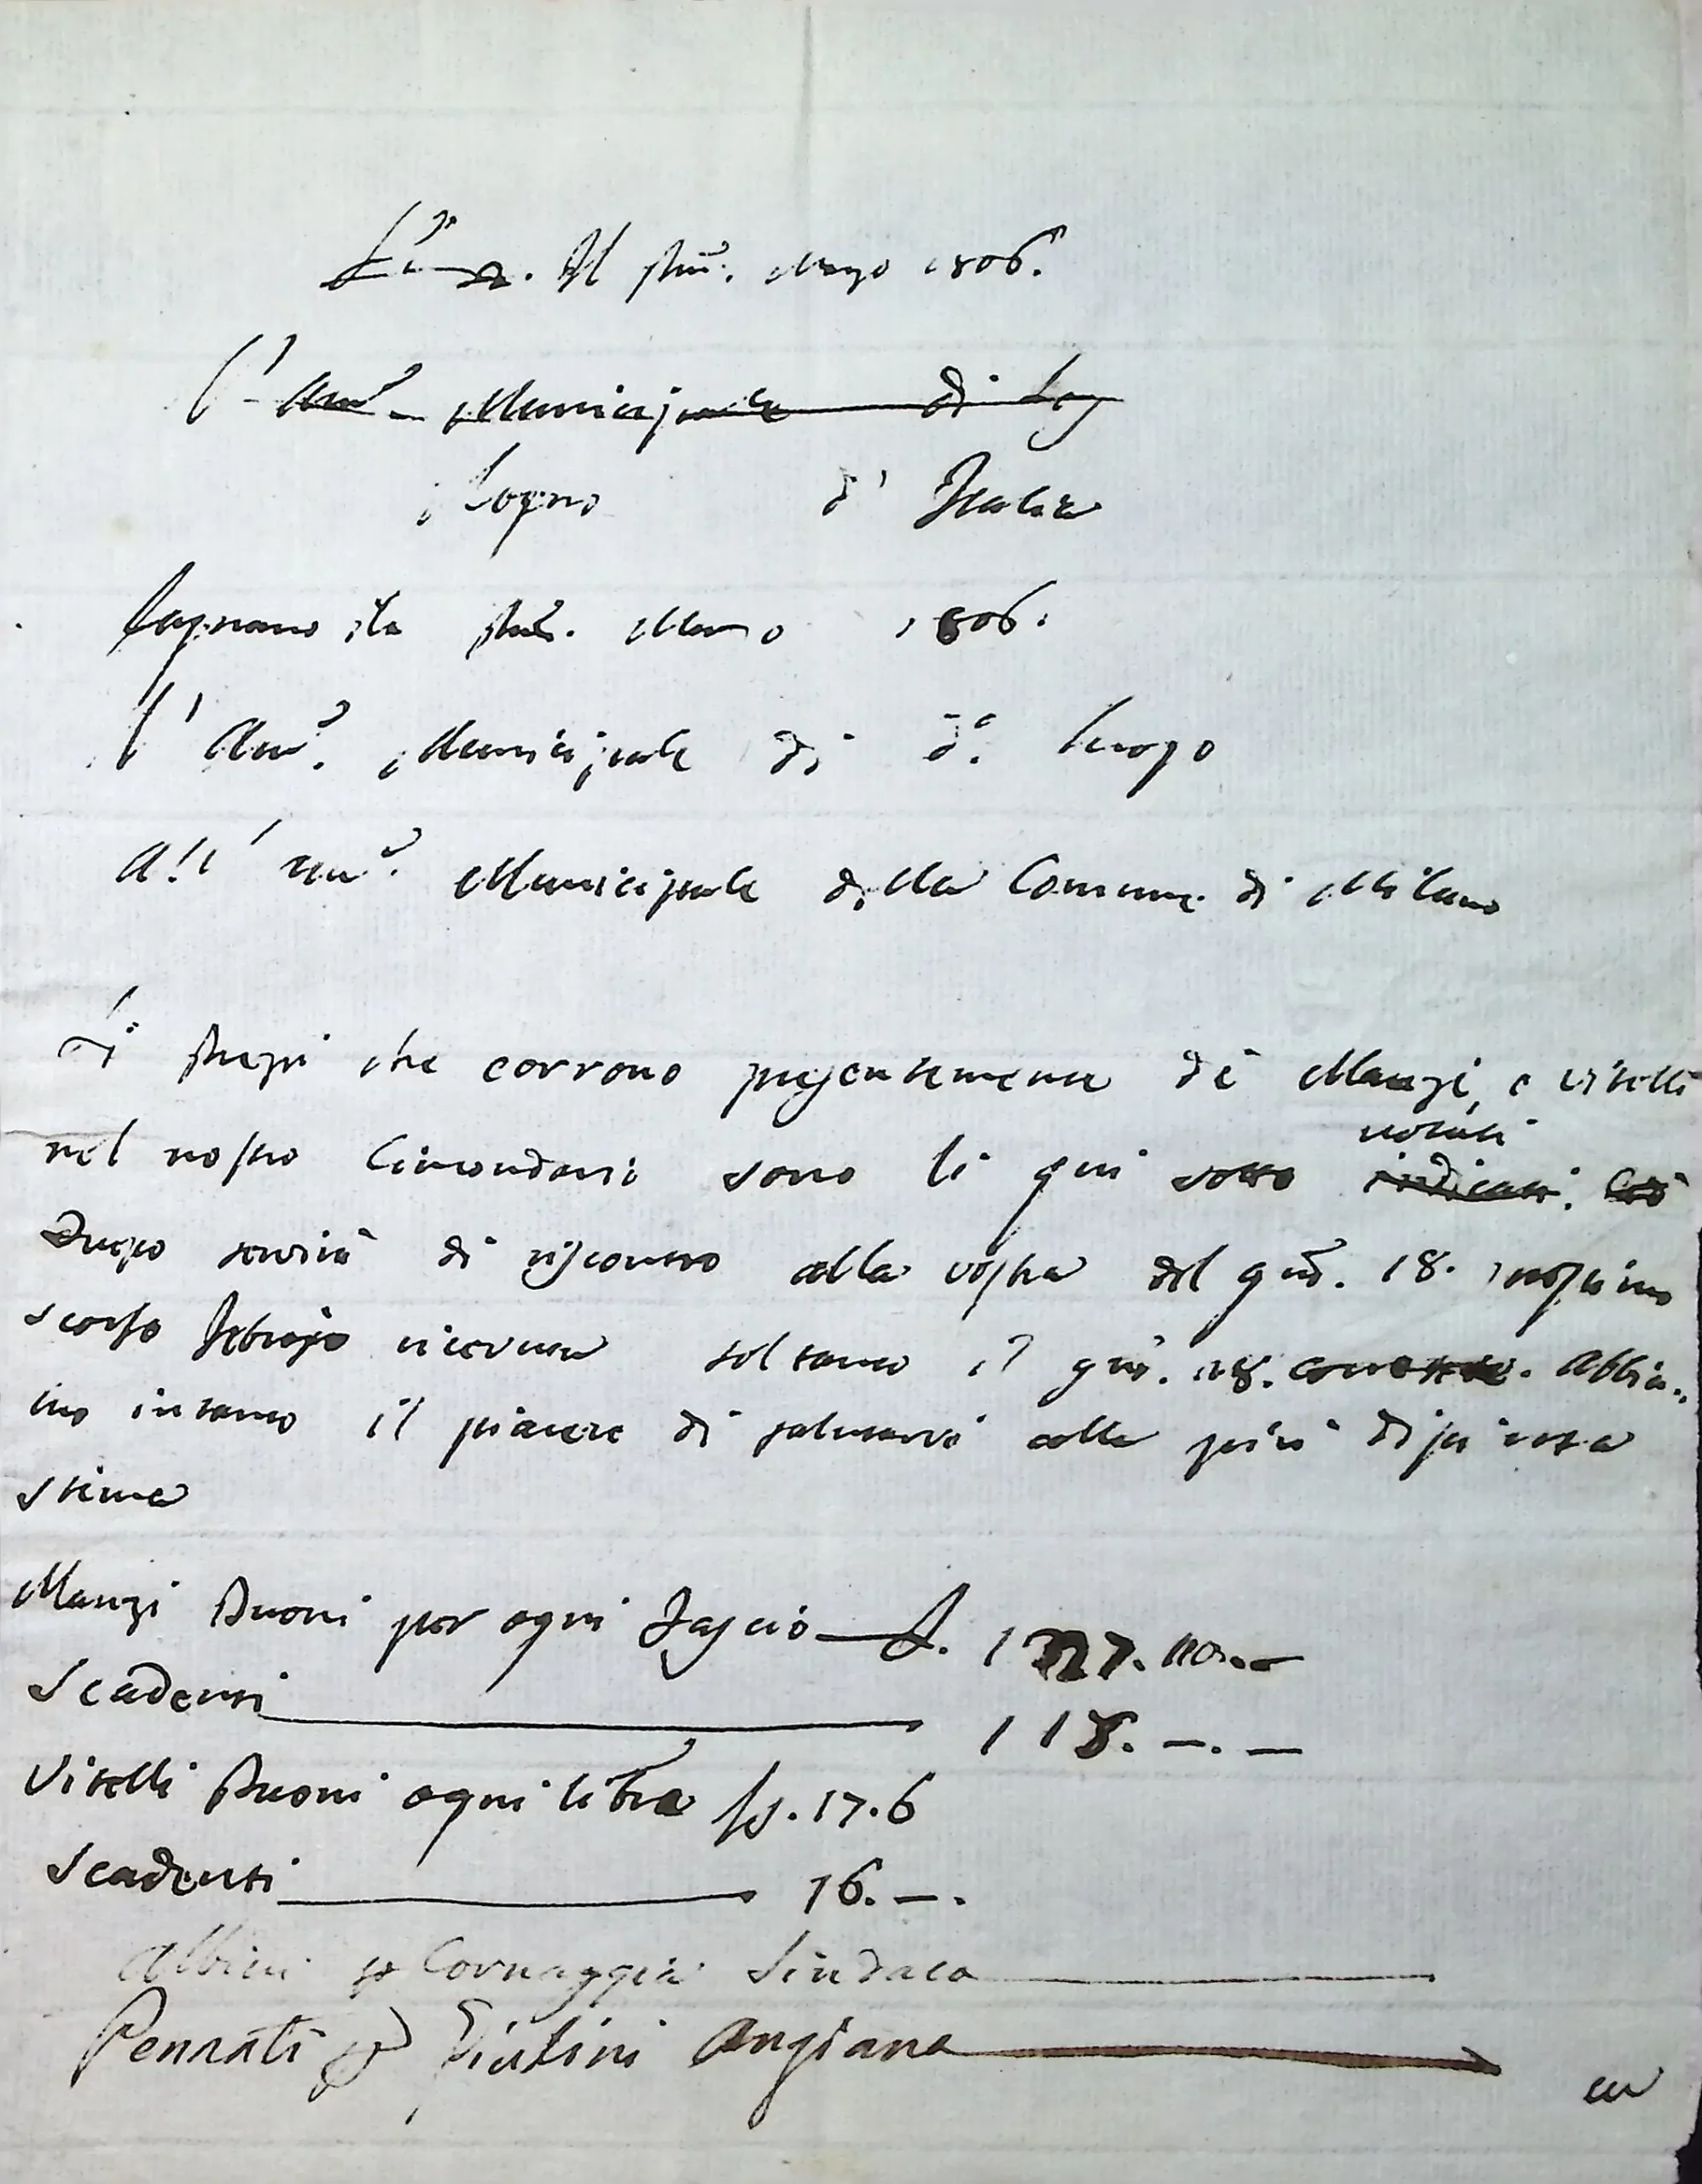 Il pmo. Marzo 1806.
l'Amne. Municipale di Leg
Regno d' Italia
Legnano il pmo. Marzo 1806.
L' Amne. Municipale di do. luogo
All' Amne. Municipale della Comune di Milano
I prezzi che corrono presentemente dè Manzi, e vitelli
nel nostro Circondario sono li qui sotto indicati. notati
Tanto servirà di riscontro alla vostra del gno. 18. prossimo
scorso febrajo ricevuta soltanto il gno. 28. corrente. Abbia-
mo intanto il piacere di salutarvi colla più distinta
stima
Manzi Buoni per ogni Fascio L. 127. 10. —
Scadenti 118. —. —
Vitelli Buoni ogni libra Ss. 17. 6
Scadenti 16. —.
Albini p Cornaggia Sindaco
Pennati p Giulini Anziano